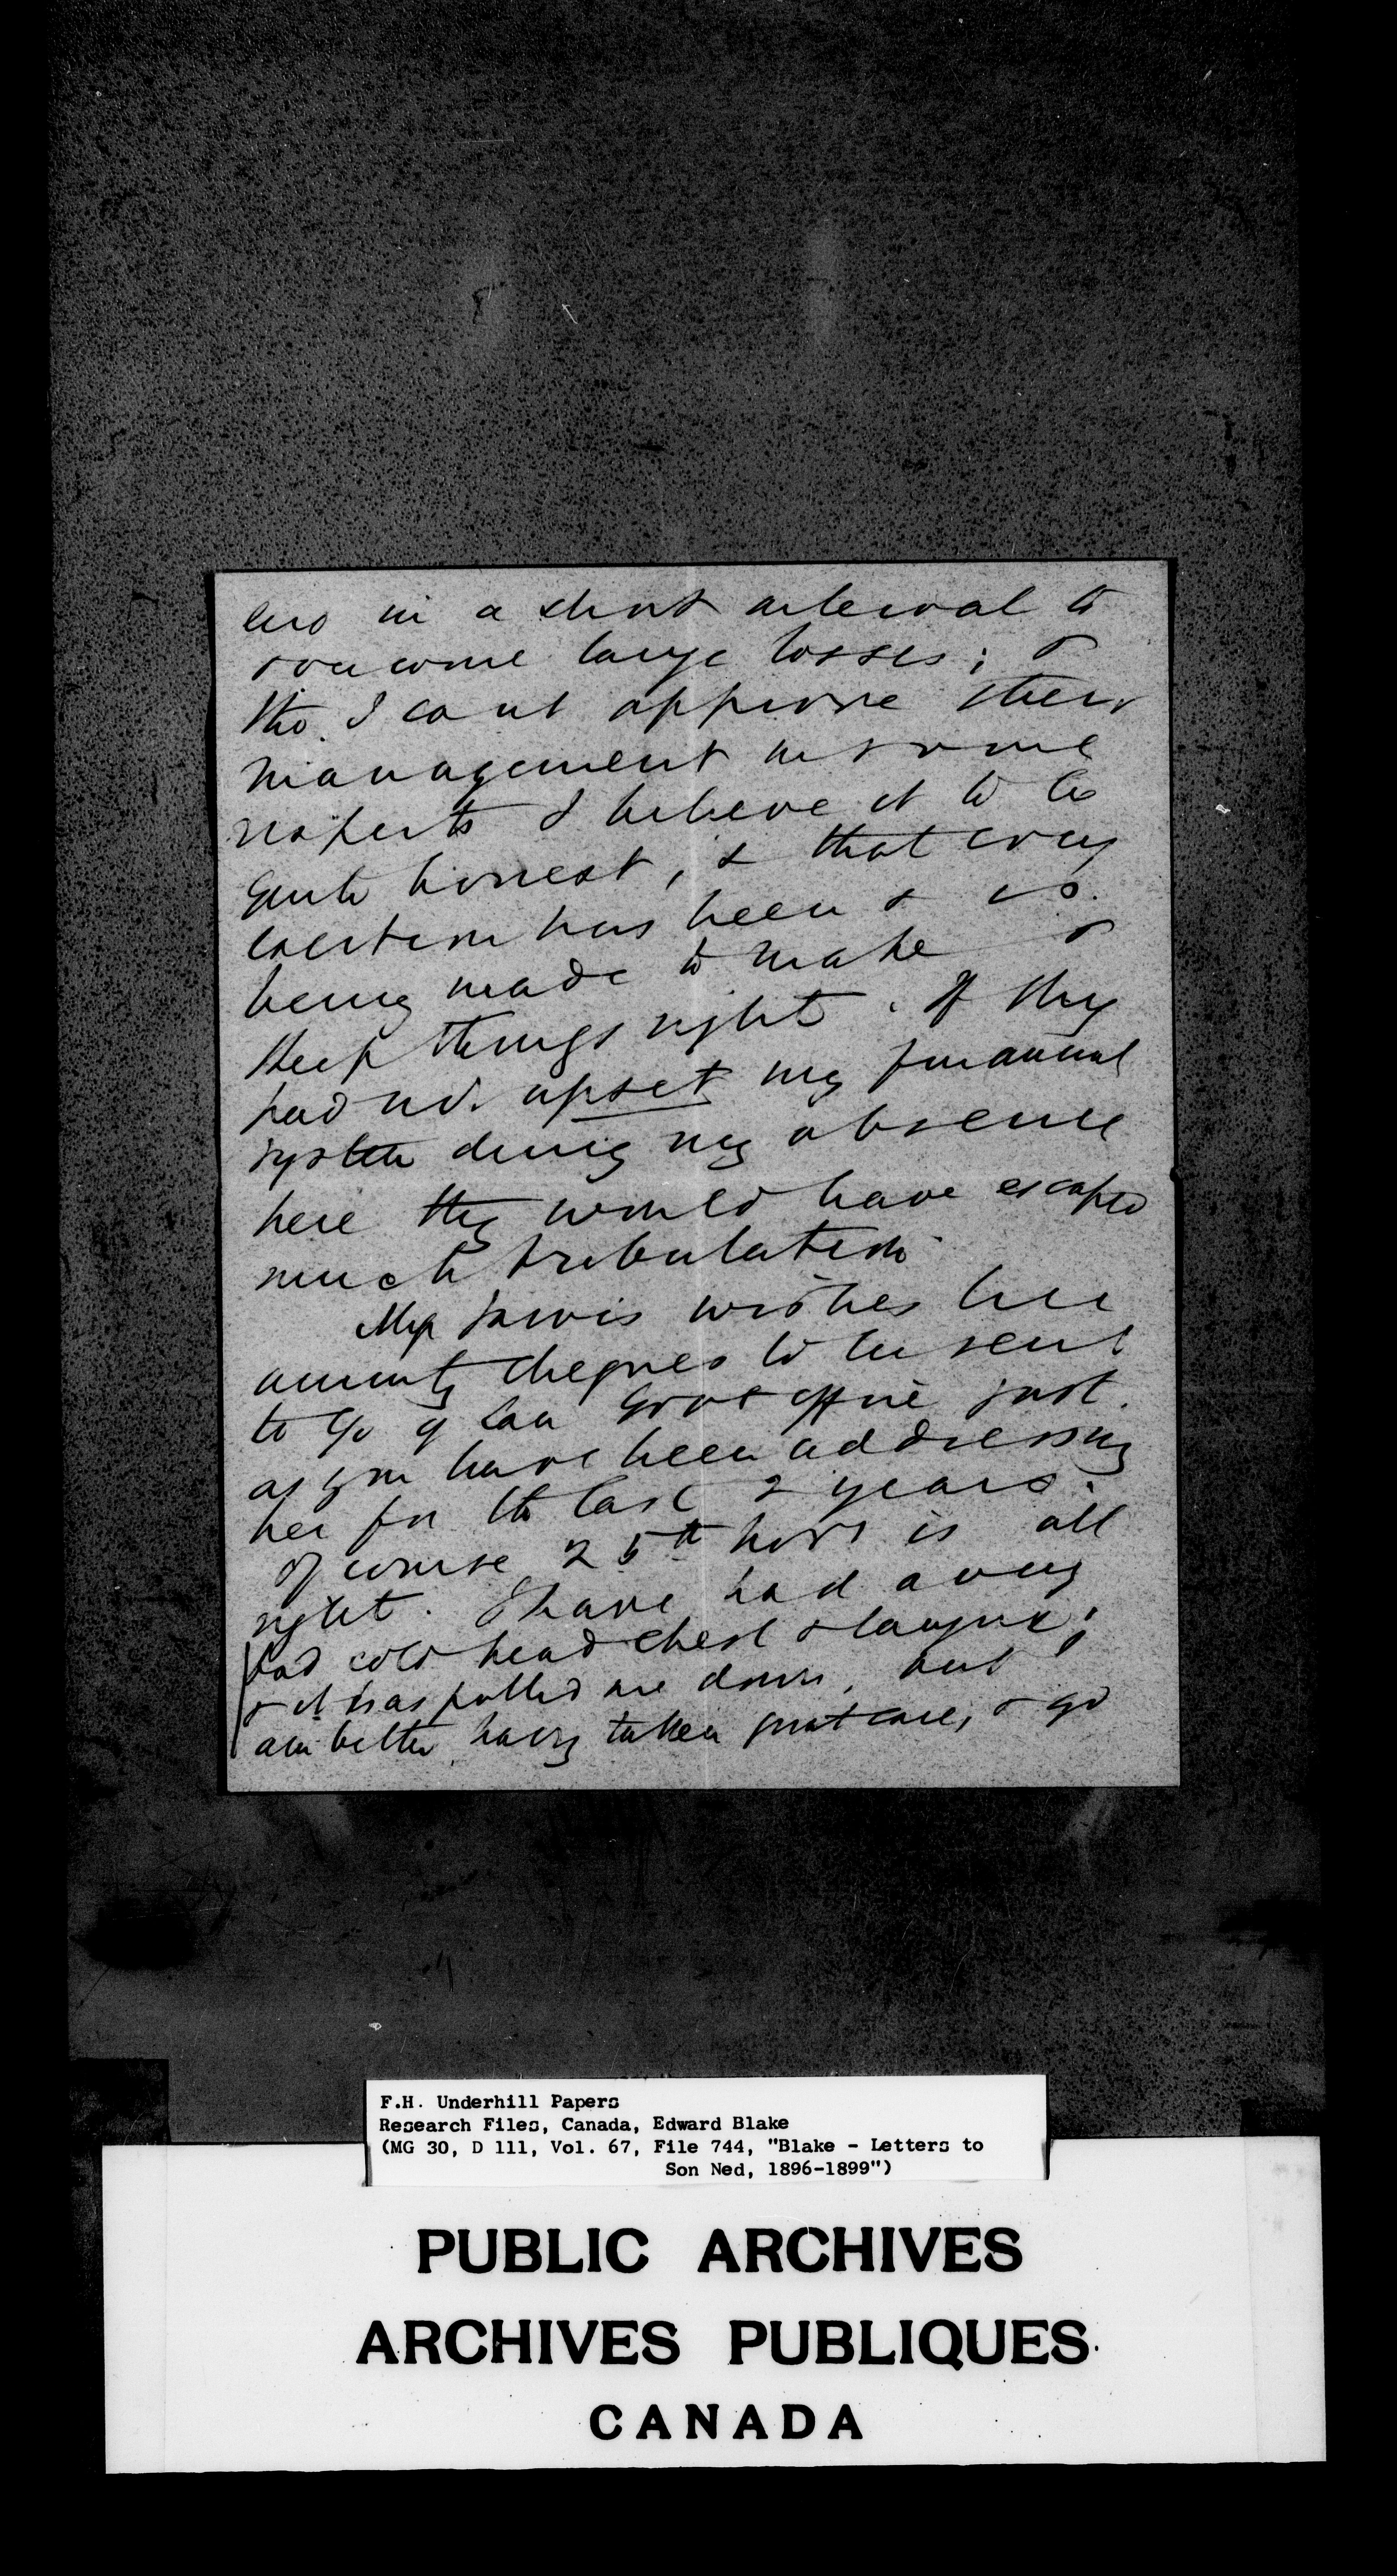 in a short interval to
overcome large losses; &
tho I cant approve their
management in some
respects I believe it to be
quite honest, & that every
exertion has been & is
being made to make &
keep things right. If they
had not upset my financial
system during my absence
here they would have escaped
much tribulation
Miss Jarvis wishes her
annuity cheques to be sent
to c/o of Can Govt office just
as you have been addressing
her for the last 2 years.
Of course 25th Novr is all
right. I have had a very
bad cold head chest &
& it has pulled me down, but
am better having taken great care, & go
F.H. Underhill Papers
Research Files, Canada, Edward Blake
(MG 30, D 111, Vol. 67, File 744, "Blake - Letters to
Son Ned, 1896-1899")
PUBLIC ARCHIVES
ARCHIVES PUBLIQUES
CANADA